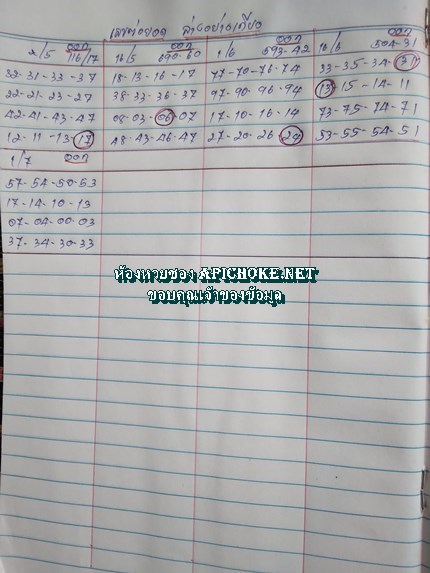 เลขต่อยอด ล่างอย่างเดียว
2/5 ออก 116/17
32-31-33-37
22-21-23-27
42-41-43-47
12-11-13-17
16/5 ออก 690-60
18-13-16-17
38-33-36-37
08-03-06-07
48-43-46-47
1/6 ออก 593-42
77-70-76-74
97-90-96-94
17-10-16-14
27-20-26-24
16/6 ออก 504-31
33-35-34-31
13-15-14-11
73-75-74-71
53-55-54-51
1/7 ออก
57-54-50-53
17-14-10-13
07-04-00-03
37-34-30-33
ห้องหวยซอง APICHOKE.NET
ขอบคุณเจ้าของข้อมูล